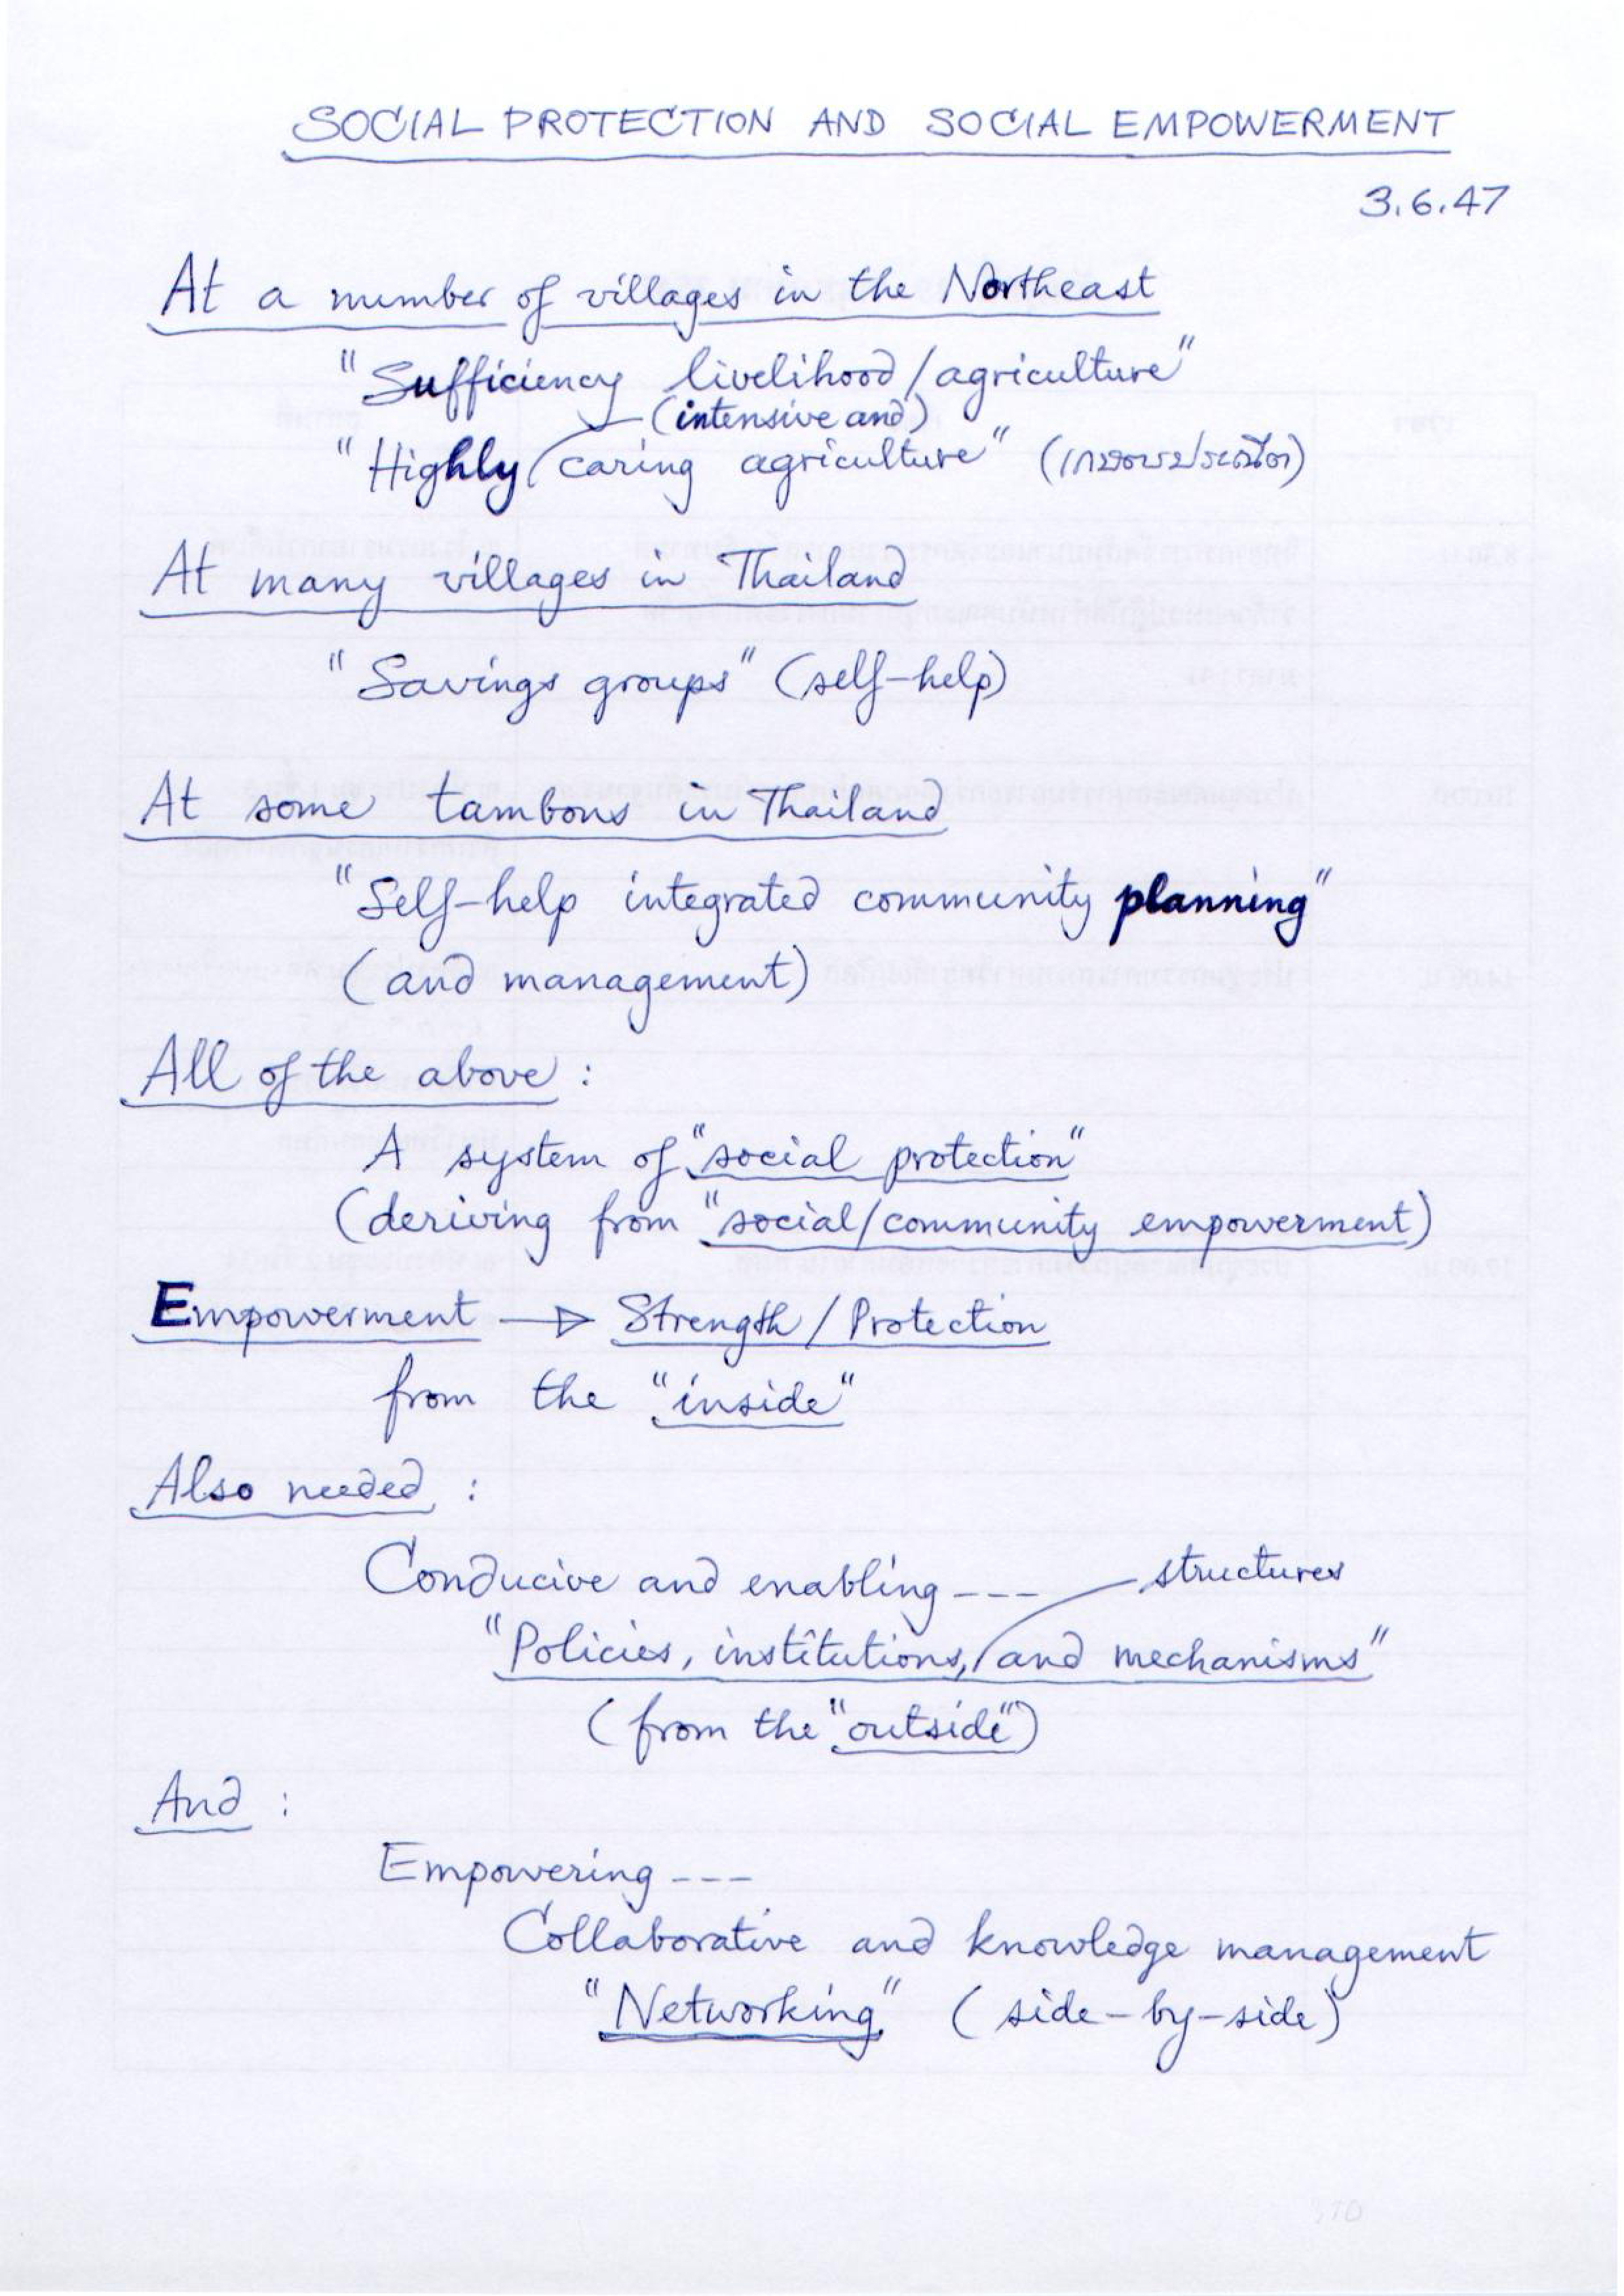 SOCIAL PROTECTION AND SOCIAL EMPOWERMENT
3.6.47
At a number of villages in the Northeast
"Sufficiency livelihood/agriculture"
(intensive and)
"Highly caring agriculture" (เกษตรประณีต)
At many villages in Thailand
"Savings groups" (self-help)
At some tambons in Thailand
"Self-help integrated community planning"
(and management)
All of the above :
A system of "social protection"
(deriving from "social/community empowerment)
Empowerment → Strength/Protection
from the "inside"
Also needed :
Conducive and enabling --- structures
"Policies, institutions, and mechanisms"
(from the "outside")
And :
Empowering ---
Collaborative and knowledge management
"Networking" (side-by-side)